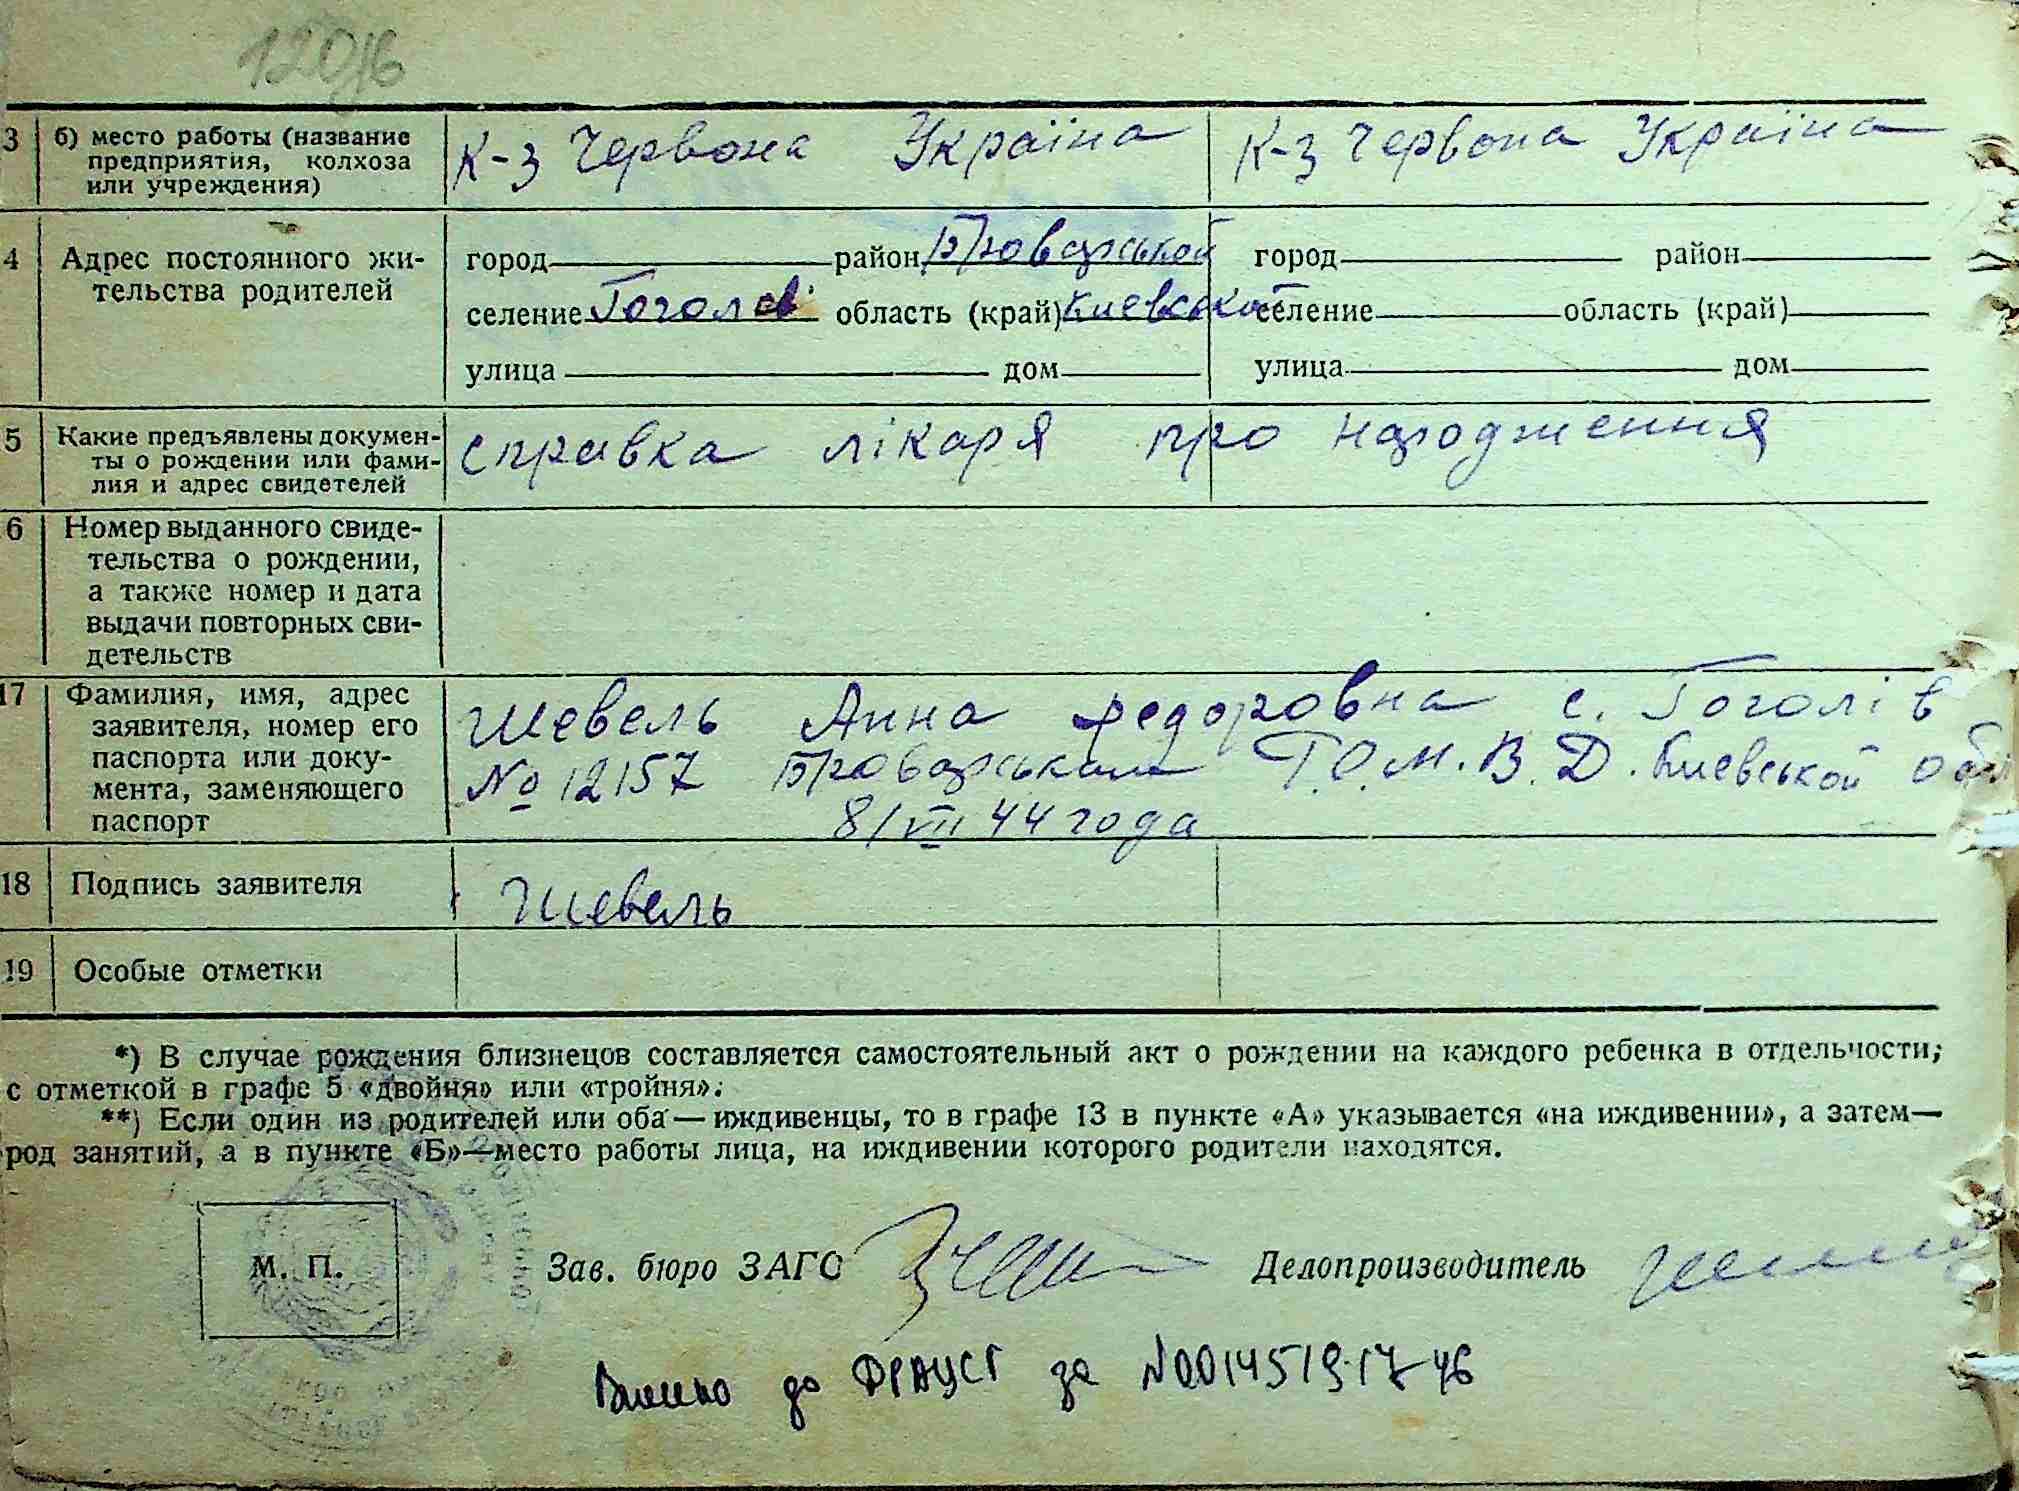 120/6
3 б) место работы (название К-з Червона Україна К-з Червона Україна
предприятия, колхоза
или учреждения)
4 Адрес постоянного жи-
тельства родителей
город район Броварський
селение Гоголев область (край) Киевської
улица дом
город район
селение область (край)
улица дом
5 Какие предъявлены докумен-
ты о рождении или фами-
лия и адрес свидетелей
справка лікаря про народження
6 Номер выданного свиде-
тельства о рождении,
а также номер и дата
выдачи повторных сви-
детельств
17 Фамилия, имя, адрес
заявителя, номер его
паспорта или доку-
мента, заменяющего
паспорт
Шевель Анна Федоровна с. Гоголів
№ 12157 Броварським Р.О.М.В.Д. Киевської обл
8/VII 44 года
18 Подпись заявителя Шевель
19 Особые отметки
*) В случае рождения близнецов составляется самостоятельный акт о рождении на каждого ребенка в отдельности,
с отметкой в графе 5 «двойня» или «тройня».
**) Если один из родителей или оба — иждивенцы, то в графе 13 в пункте «А» указывается «на иждивении», а затем—
род занятий, а в пункте «Б»—место работы лица, на иждивении которого родители находятся.
М. П. Зав. бюро ЗАГС Делопроизводитель
до ФРАЦСГ за №00145191746